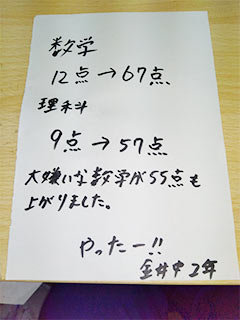 数学
12点→67点
理科
9点→57点
大嫌いな数学が55点も
上がりました。
やったー!!
金井中2年